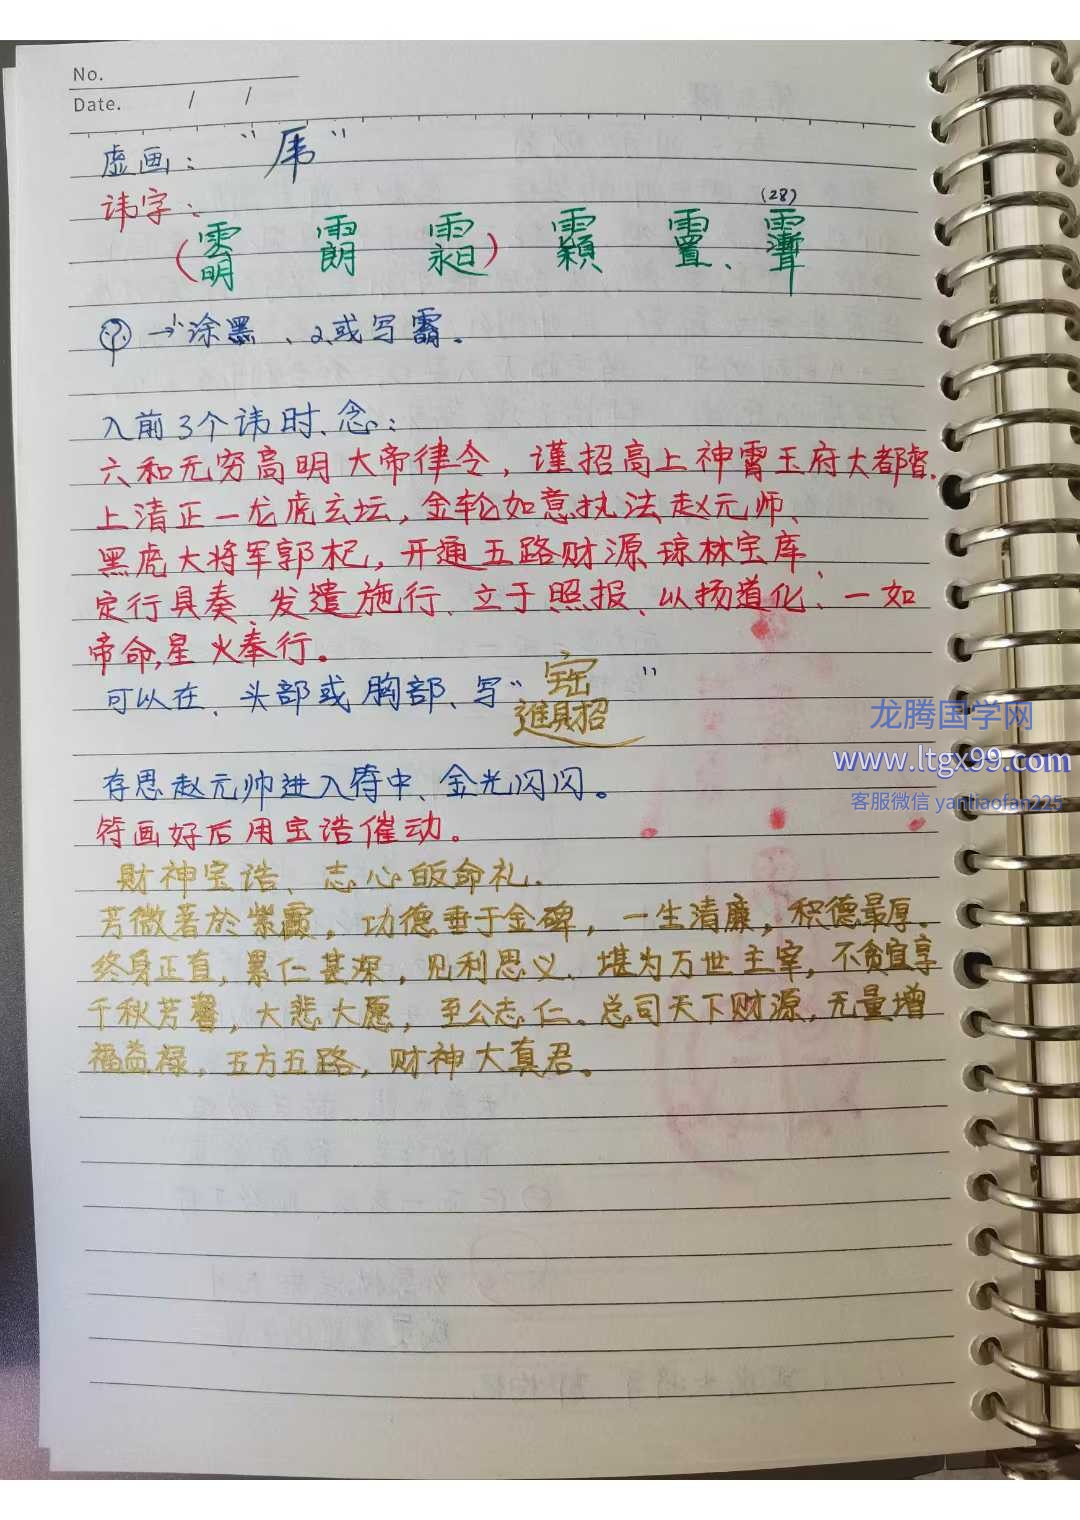 No.
Date. / /
虚画： “ ”
讳字：
(28)
→ 1、涂黑、2、或写霸。
入前3个讳时、念：
六和无穷高明大帝律令，谨招高上神霄玉府大都督.
上清正一龙虎玄坛，金轮如意执法赵元帅、
黑虎大将军郭杞，开通五路财源、琼林宝库、
定行具奏、发遣施行、立于照报、以扬道化、一如
帝命,星火奉行。
可以在、头部或胸部、写“ ”
進財招
存思赵元帅进入符中、金光闪闪。
符画好后用宝诰催动。
財神宝诰、志心皈命礼.
芳微著於紫霞，功德垂于金碑，一生清廉，积德最厚.
终身正直，累仁甚深，见利思义、堪为万世主宰，不贪宜享
千秋芳馨，大悲大愿，至公志仁。总司天下财源,无量增
福益禄，五方五路，财神大真君。
龙腾国学网
www.ltgx99.com
客服微信 yanliaofan225